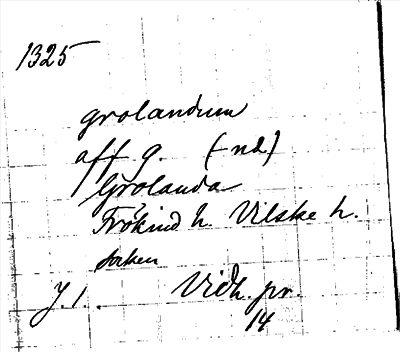 1325
grolandum
aff g. (-nd)
Grolanda
Frökind h. Vilske h.
socken
J. 1. Vidh. pr.
14